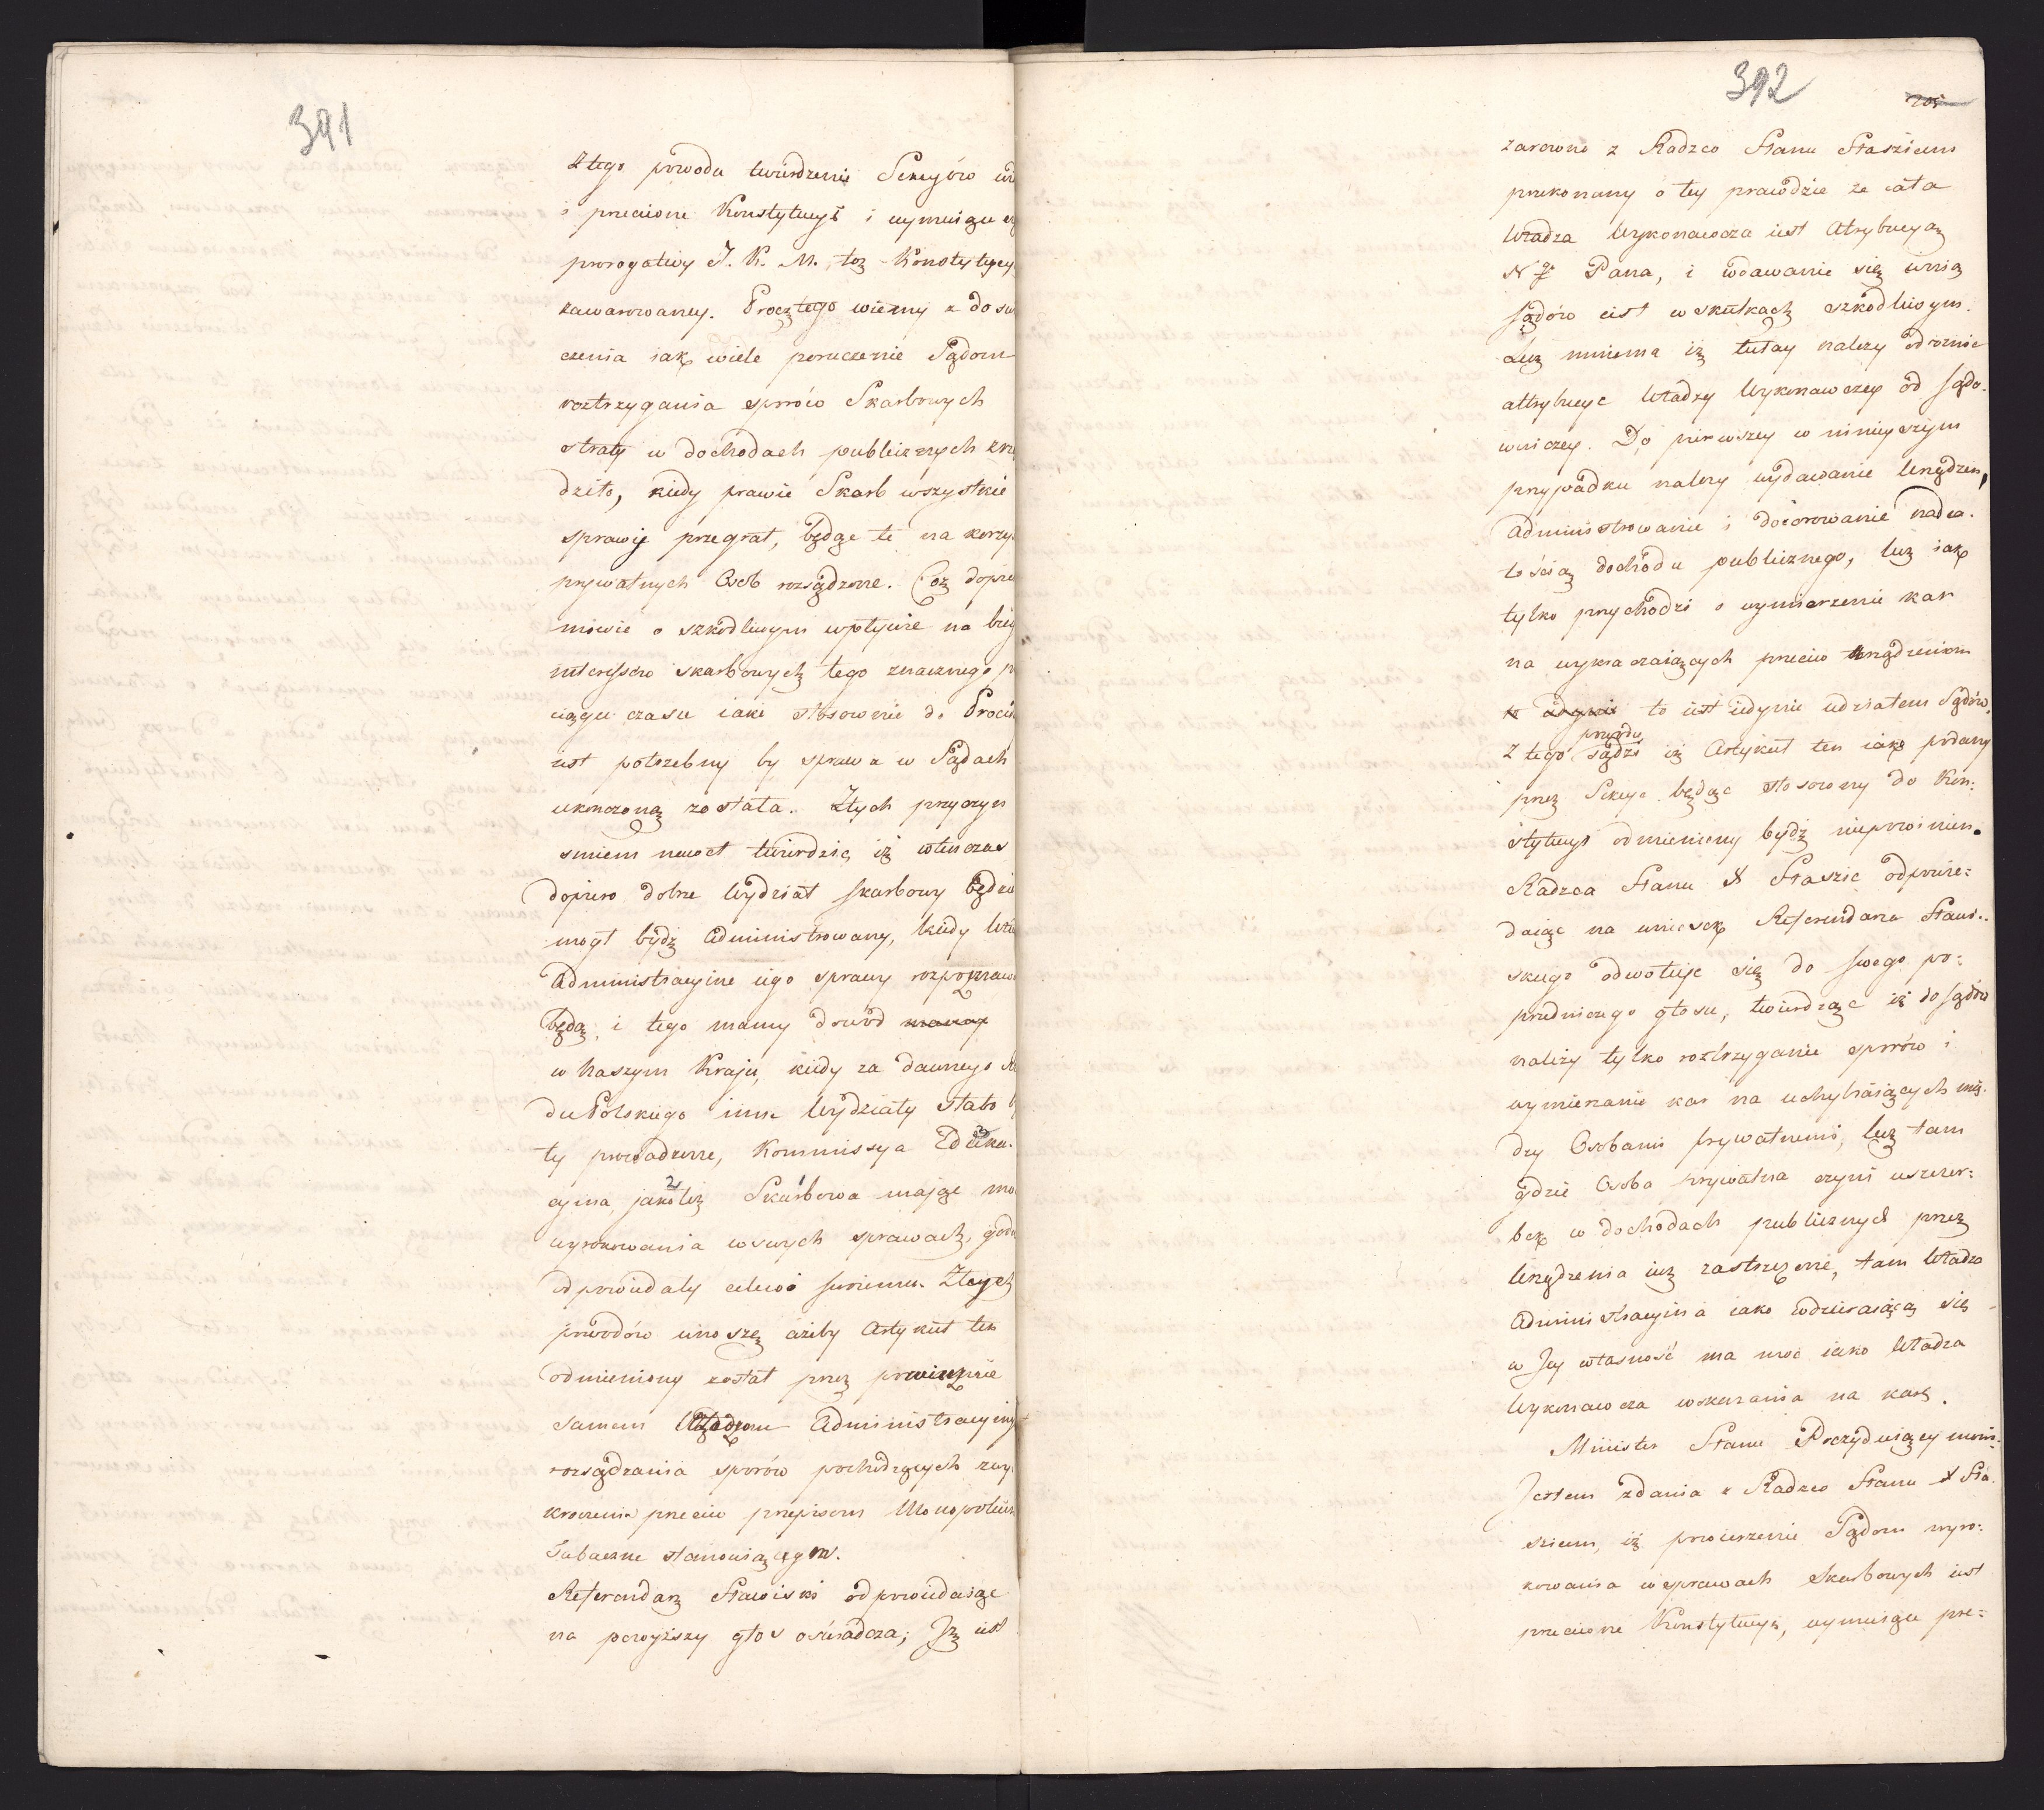 391
Z tego powodu twierdzenie Sekcyów
i przeciwne Konstytucyi i uymuiące
prorogatiwy J. K. M., tąz Konstytucy
zawarowaney. Procz tego wiemy z do
czenia iak wiele poruczenie Sądom
roztrzygania sporów Skarbowych
straty w dochodach publicznych
dziło, kiedy prawie Skarb wszystkie
sprawy przegrał, będąc te na korzy
prywatnych Osob rozsądzone. Coz dopie
mówić o szkodliwym wpływie na bieg
interessów skarbowych tego znacznego
ciągu czasu iaki stosownie do Proce
iest potrzebny by sprawa w Sądach
ukonczoną została. Z tych przyczyn
smiem nawet twierdzić iż wtenczas
dopiero dobrze Wydział skarbowy będzie
mogł bydź administrowany, kiedy
Administracyine iego sprawy
będą, i tego mamy dowód
w Naszym Kraju, kiedy za dawnego
du Polskiego inne Wydziały słabo
ty prowadzone, Kommissya Eduka-
cyina, jakoteż Skarbowa mając mo
wyrokowania w swych sprawach,
odpowiedały celowi swoiemu. Z tych
powodów wnoszę ażeby Artykuł ten
odmieniony został przez
samem Administracyiny
rozsądzania sporów pochodzących z wy
kroczenia przeciw przepisom Monopolium
Tabaczne stanowiącym.
Referendarz Stawiski odpowiedaiąc
na powyższy głos oświadcza; Iż iest
392
205
zarowno z Radzco Stanu Staszicem
przekonany o tey prawdzie ze cała
Władza Wykonawcza iest Atrybucyą
N Pana, i wdawanie się w nią
sądów iest w skutkach szkodliwym.
Lecz mniema iż tutay nalezy odroznic
attrybucye Władzy Wykonawczey od sądo-
wniczey. Do pierwszey w ninieyszym
przypadku nalezy wydawanie Urządzen,
administrowanie i dozorowanie nad ca-
łością dochodu publicznego, lecz iak
tylko przychodzi o wymierzenie kar
na wykraczaiących przeciw Urządzeniom
to iest iedynie udziałem Sądów.
Z tego powodu sądzi iż Artykuł ten iako podany
przez Sekcye będąc stosowny do Kon-
stytucyi odmieniony bydź niepowinien.
Radzca Stanu X Staszic odpowie-
daiąc na wniosek Referendarza Stawi-
skiego odwołuje się do swego po-
przedniczego głosu, twierdząc iż do sądów
należy tylko roztrzyganie sporów i
wymierzanie kar na uchybiaiących mię-
dzy Osobami prywatnemi, lecz tam
gdzie Osoba prywatna czyni uszczer-
bek w dochodach publicznych przez
Urządzenia iuz zastrzeżone, tam Władza
Administracyina iako wdzieraiącą się
w Jey własność ma moc iako Władza
Wykonawcza wskazania na karę.
Minister Stanu Prezyduiący mówi:
Jestem zdania z Radzco Stanu X Sta-
szicem, iż powierzenie Sądom wyro-
kowania w sprawach Skarbowych iest
przeciwne Konstytucyi, uymuiące pre-